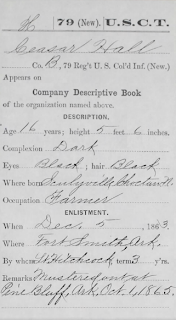 H | 79 (New). | U.S.C.T.
Ceasar Hall
Co. B, 79 Reg't U. S. Col'd Inf. (New.)
Appears on
Company Descriptive Book
of the organization named above.
DESCRIPTION.
Age 16 years; height 5 feet 6 inches.
Complexion Dark
Eyes Black; hair Black
Where born Sculyville, Choctaw N.
Occupation Farmer
ENLISTMENT.
When Dec. 5, 1863.
Where Fort Smith, Ark.
By whom Hitchcock; term 3 y'rs.
Remarks Mustered out at
Pine Bluff, Ark, Oct. 1, 1865.